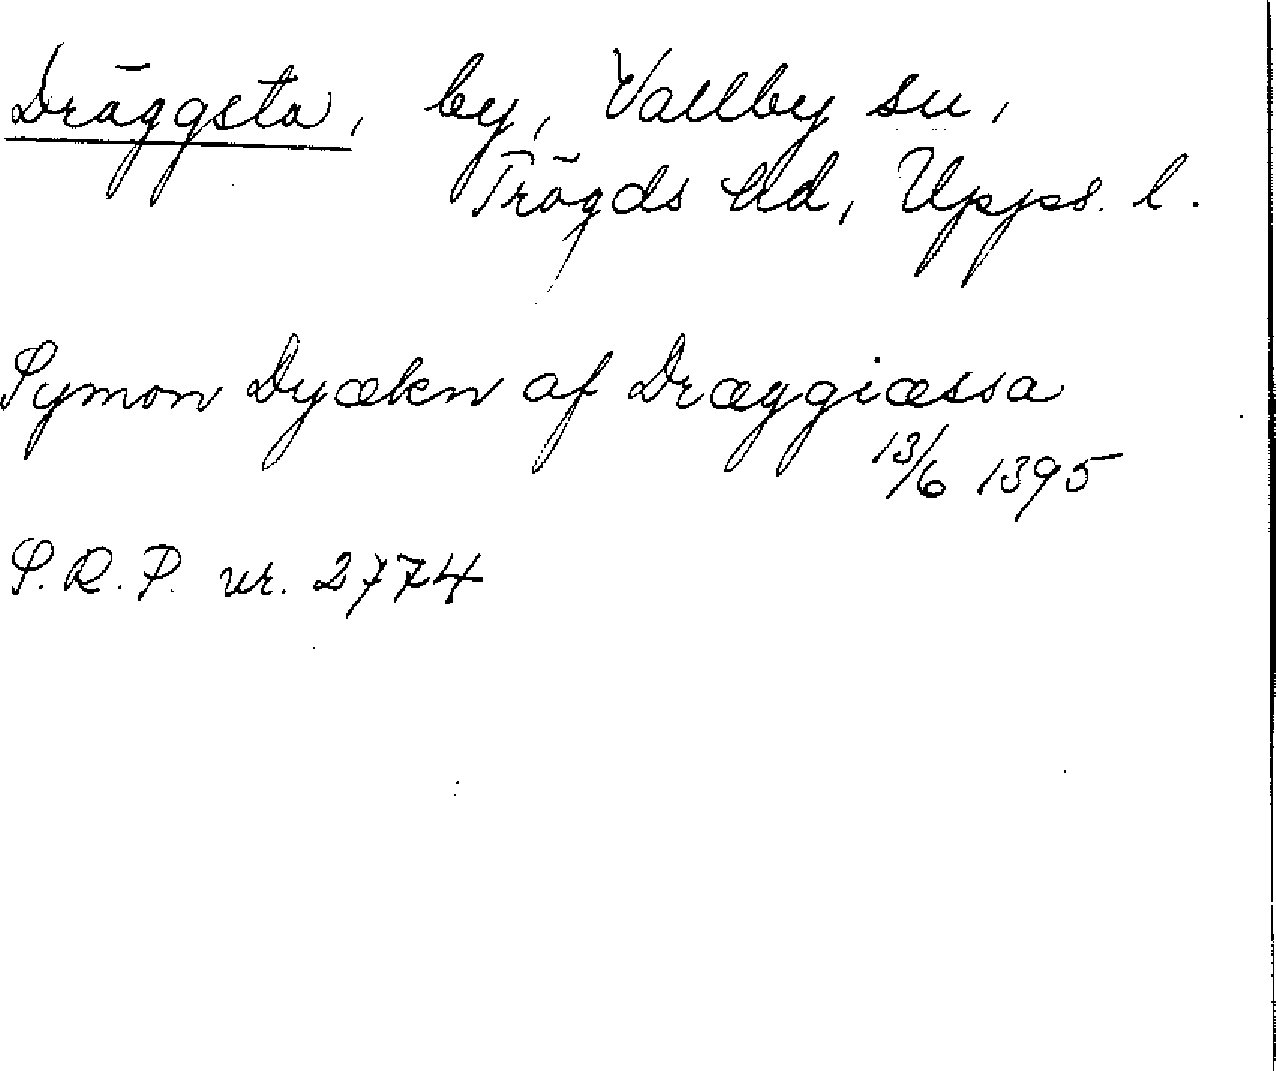 Dräggsta, by, Vallby sn,
Trögds hd, Upps. l.
Symon Dyækn af Dræggiæssa
13/6 1395
S.R.P. nr. 2774